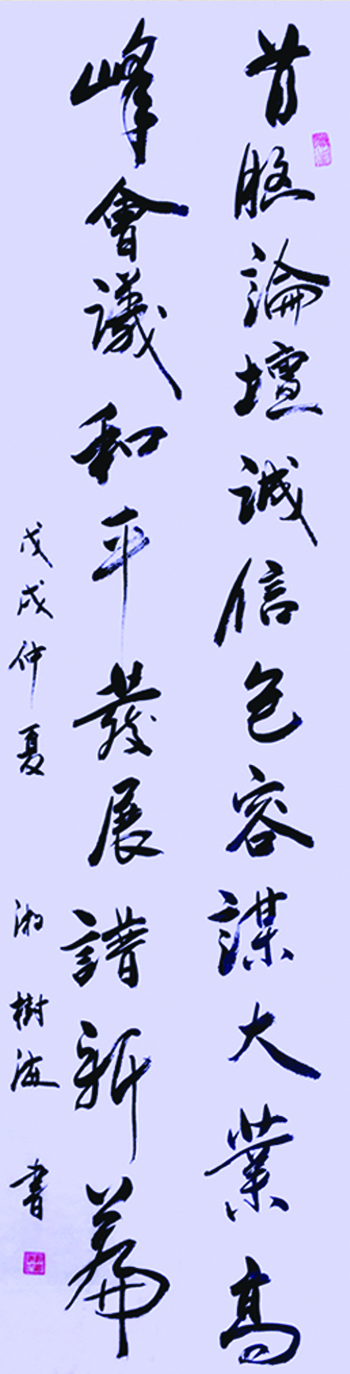 首腦論壇誠信包容謀大業高
峰會議和平發展譜新篇
戊戌仲夏 湘樹海書